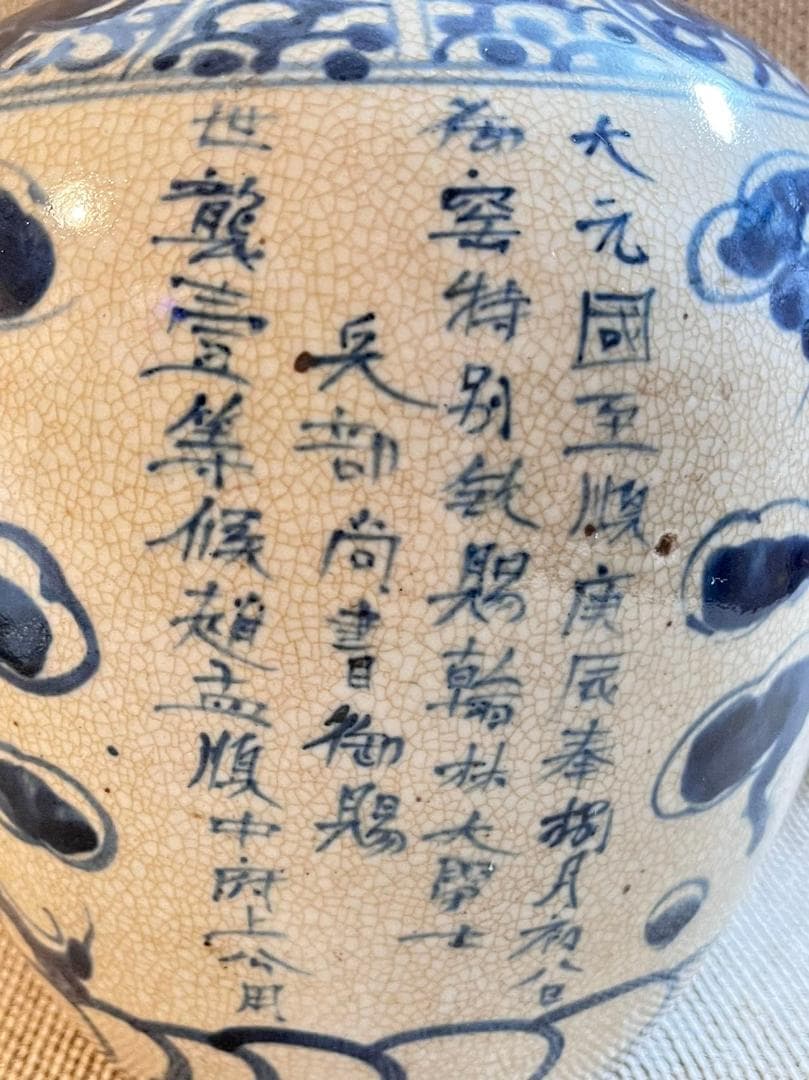 大元國至順庚辰奉捌月初八日
御窑特别敕賜翰林大學士
兵部尚書御賜
世襲壹等候趙孟順中府上公用